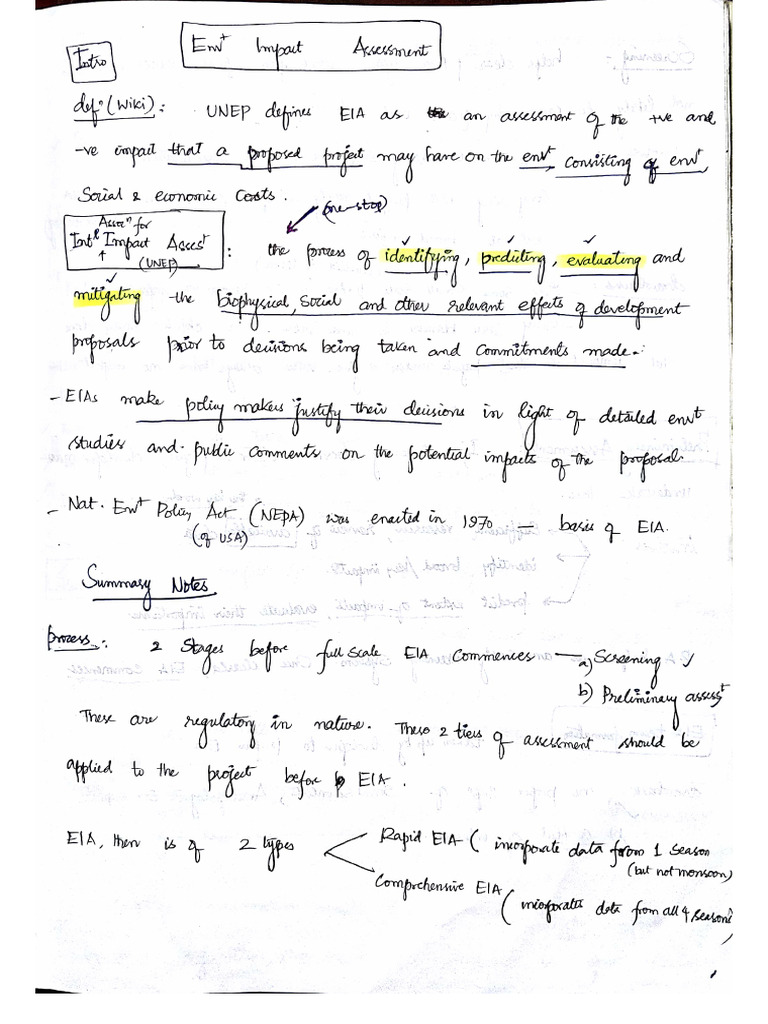 Envt Impact Assessment
Intro
defn (Wiki): UNEP defines EIA as an assessment of the +ve and
-ve impact that a proposed project may have on the envt, consisting of envt,
Social & economic Costs.
(one-stop)
Assocn for
Intl Impact Assest : the process of identifying, predicting, evaluating and
(UNEP)
mitigating the biophysical, social and other relevant effects of development
proposals prior to decisions being taken and commitments made.
- EIAs make policy makers justify their decisions in light of detailed envt
studies and public comments on the potential impacts of the proposal.
- Nat. Envt Policy Act (NEPA) was enacted in 1970 — basis of EIA.
(of USA)
Summary Notes.
process: 2 Stages before full scale EIA commences — a) Screening ✓
b) Preliminary assesst
These are regulatory in nature. These 2 tiers of assessment should be
applied to the project before EIA.
EIA, then is of 2 types
Rapid EIA ( incorporate data from 1 season
(but not monsoon)
Comprehensive EIA
( incorporate data from all 4 seasons)